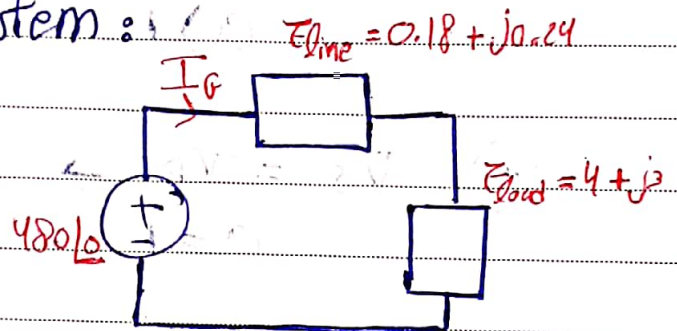 stem :
Zline = 0.18 + j0.24
IG
Zload = 4 + j3
+
480∠0
-